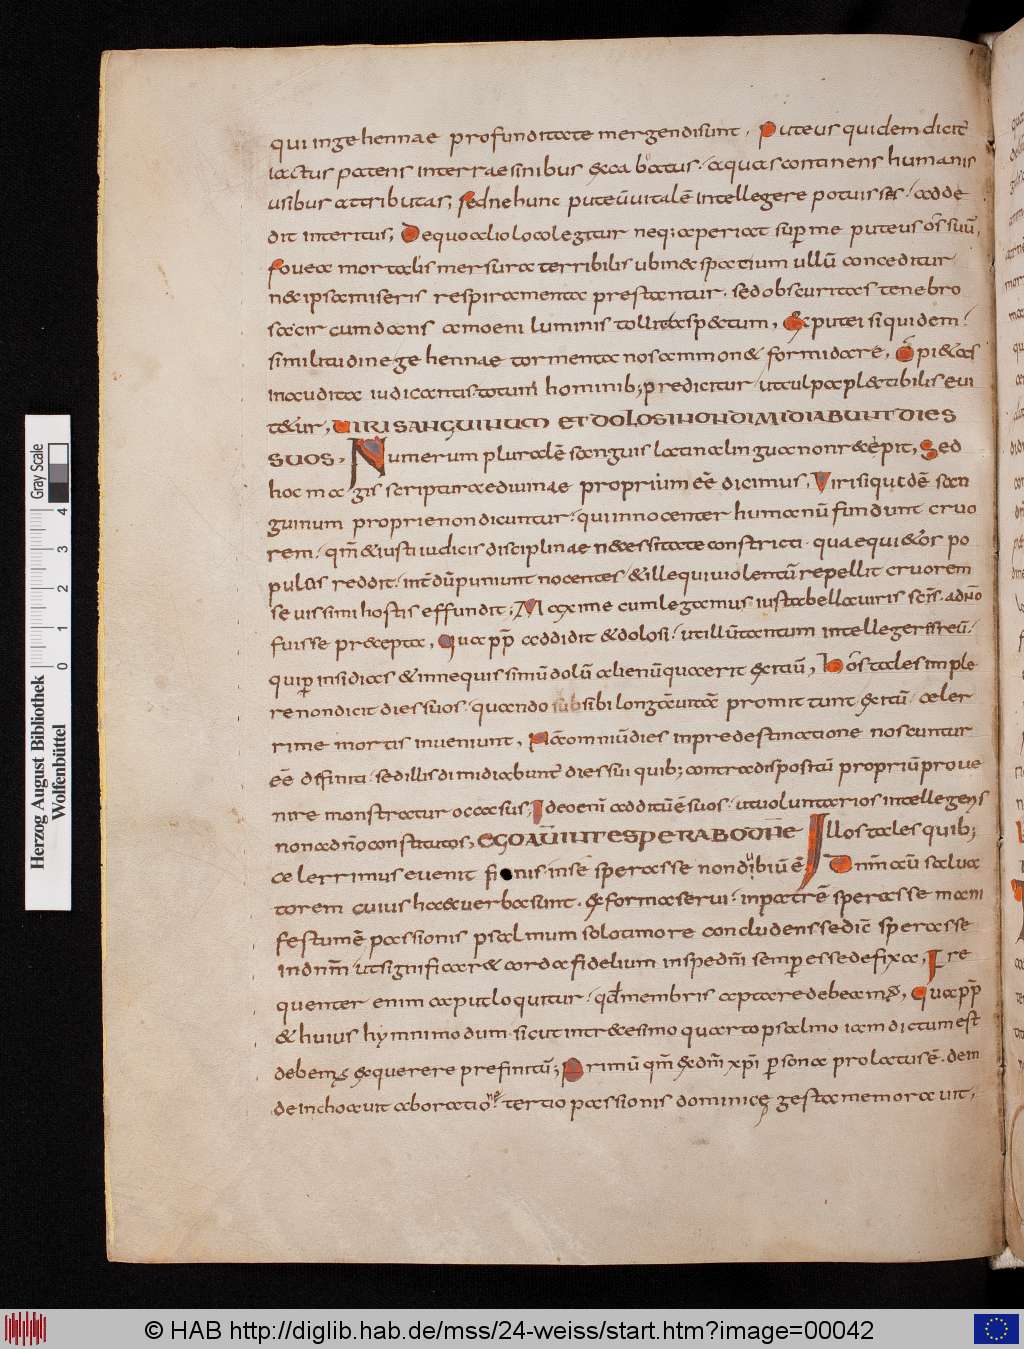 qui in gehennae profunditate mergendi sunt. Puteus quidem dicit̄
iactus patens in terrae sinibus excabatus. aquas continens humanis
usibus attributas; sed ne hunc puteū uitalē intellegere potuisses. adde
dit interitus; De quo alio loco legitur neq; aperiat sup̄ me puteus os̄ suū,
fouea mortalis mersura terribilis ubi n& spatium ullū conceditur
n& ipsa miseris respiramenta prestantur. sed obscuritas tenebro
sa cir cum dans amoeni luminis tollit asp&tum, Ex putei siquidem
similitudine gehennae tormenta nos ammon& formidare, O pi&as
inaudita iudicantis totum hominib; predicitur ut culpa pl&tibilis eui
t&ur, UIRI SANGUINUM ET DOLOSI NON DIMIDIABUNT DIES
SUOS, Numerum pluralē sanguis latina lingua non r&epit, Sed
hoc magis scripturae diuinae proprium eē dicimus, Viri siquidē san
guinum proprie non dicuntur. qui innocenter humanū fundunt cruo
rem. qm̄ & iusti iudicis disciplinae necessitate constricti. qua equi&or po
pulis reddit. int̄dū puniunt nocentes. & ille qui uiolentū repellit cruorem
seuissimi hostis effundit; Maxime cum legamus iusta bella uiris sc̄īs. a dn̄o
fuisse pr&epta, Qua pp̄ addidit & dolosi. ut illū tantum intellegeres reū.
qui p̄ insidias & iniequissimū dolū alienū quaerit exitiū, hos tales imple
re non dicit dies suos. quando sub sibi longā uitā promittunt exitū celer
rime mortis inueniunt, Nā commū dies in predestinatione noscuntur
eē diffiniti. sed illis dimidiabunt̄ dies sui quib; contra dispositū propriū proue
nire monstratur occasus, Ideo enī additū ē suos. ut uoluntarios intellegas
non a dn̄o constitutos, EGO AŪ IN TE SPERABO DN̄E Illos tales quib;
celerrimus euenit finis. in sē sperasse non dubiū ē, Dn̄m aū salua
torem cuius haec uerba sunt. ex forma serui. in patrē sperasse mani
festum ē passionis psalmum solo timore concludens sedic̄ sperasse
in dn̄m ut significar& corda fidelium in spe dn̄i semp̄ esse defixa, Fre
quenter enim caput loquitur. qd̄ membris aptare debeamus, Qua pp̄
& huius hymni modum. sicut in tr&esimo quarto psalmo iam dictum est
debemus exquerere prefinitū; Primū qm̄ ex dn̄i xp̄i p̄sona prolatus ē. dein
de inchoauit ab oratione. tertio passionis dominice gesta memorauit,
Herzog August Bibliothek
Wolfenbüttel
0 1 2 3 4
Gray Scale
© HAB http://diglib.hab.de/mss/24-weiss/start.htm?image=00042